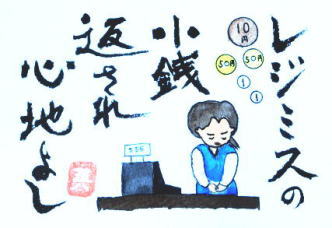 レジミスの
小銭
返され
心地よし
10
円
50円
50円
1
1